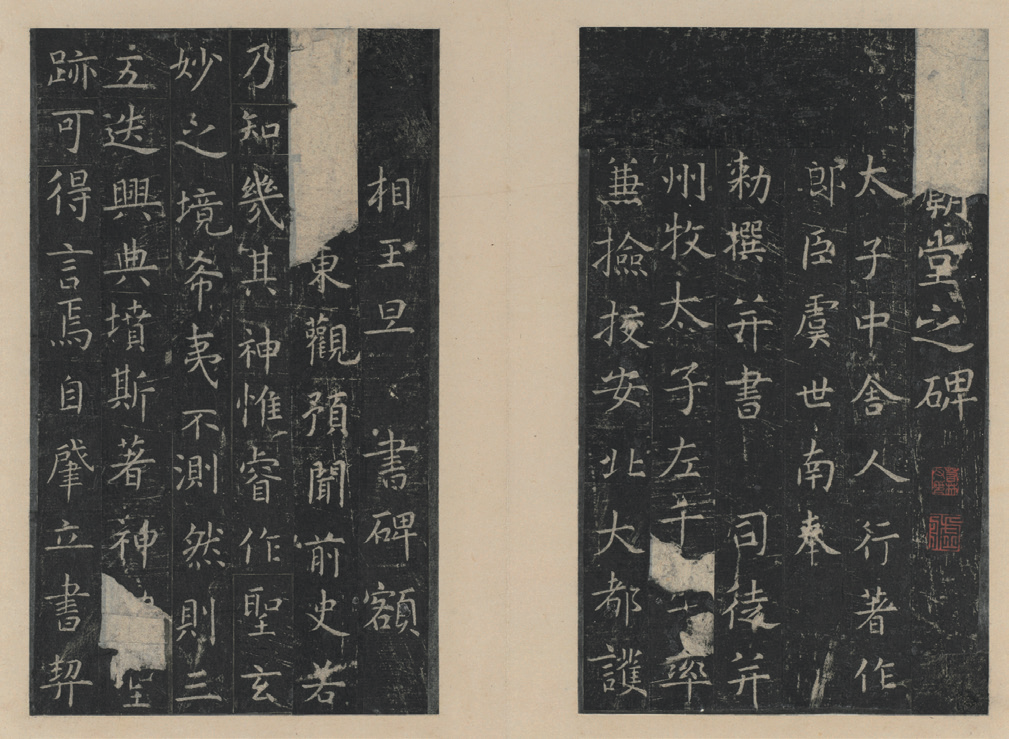 堂之碑
太子中舍人行著作
郎臣虞世南奉
勅撰并書 司徒并
州牧太子左千 率
兼撿挍安北大都護
相王旦 書碑額
東觀預聞前史若
乃知幾其神惟睿作聖玄
妙之境希夷不測然則三
五迭興典墳斯著神
跡可得言焉自肇立書契